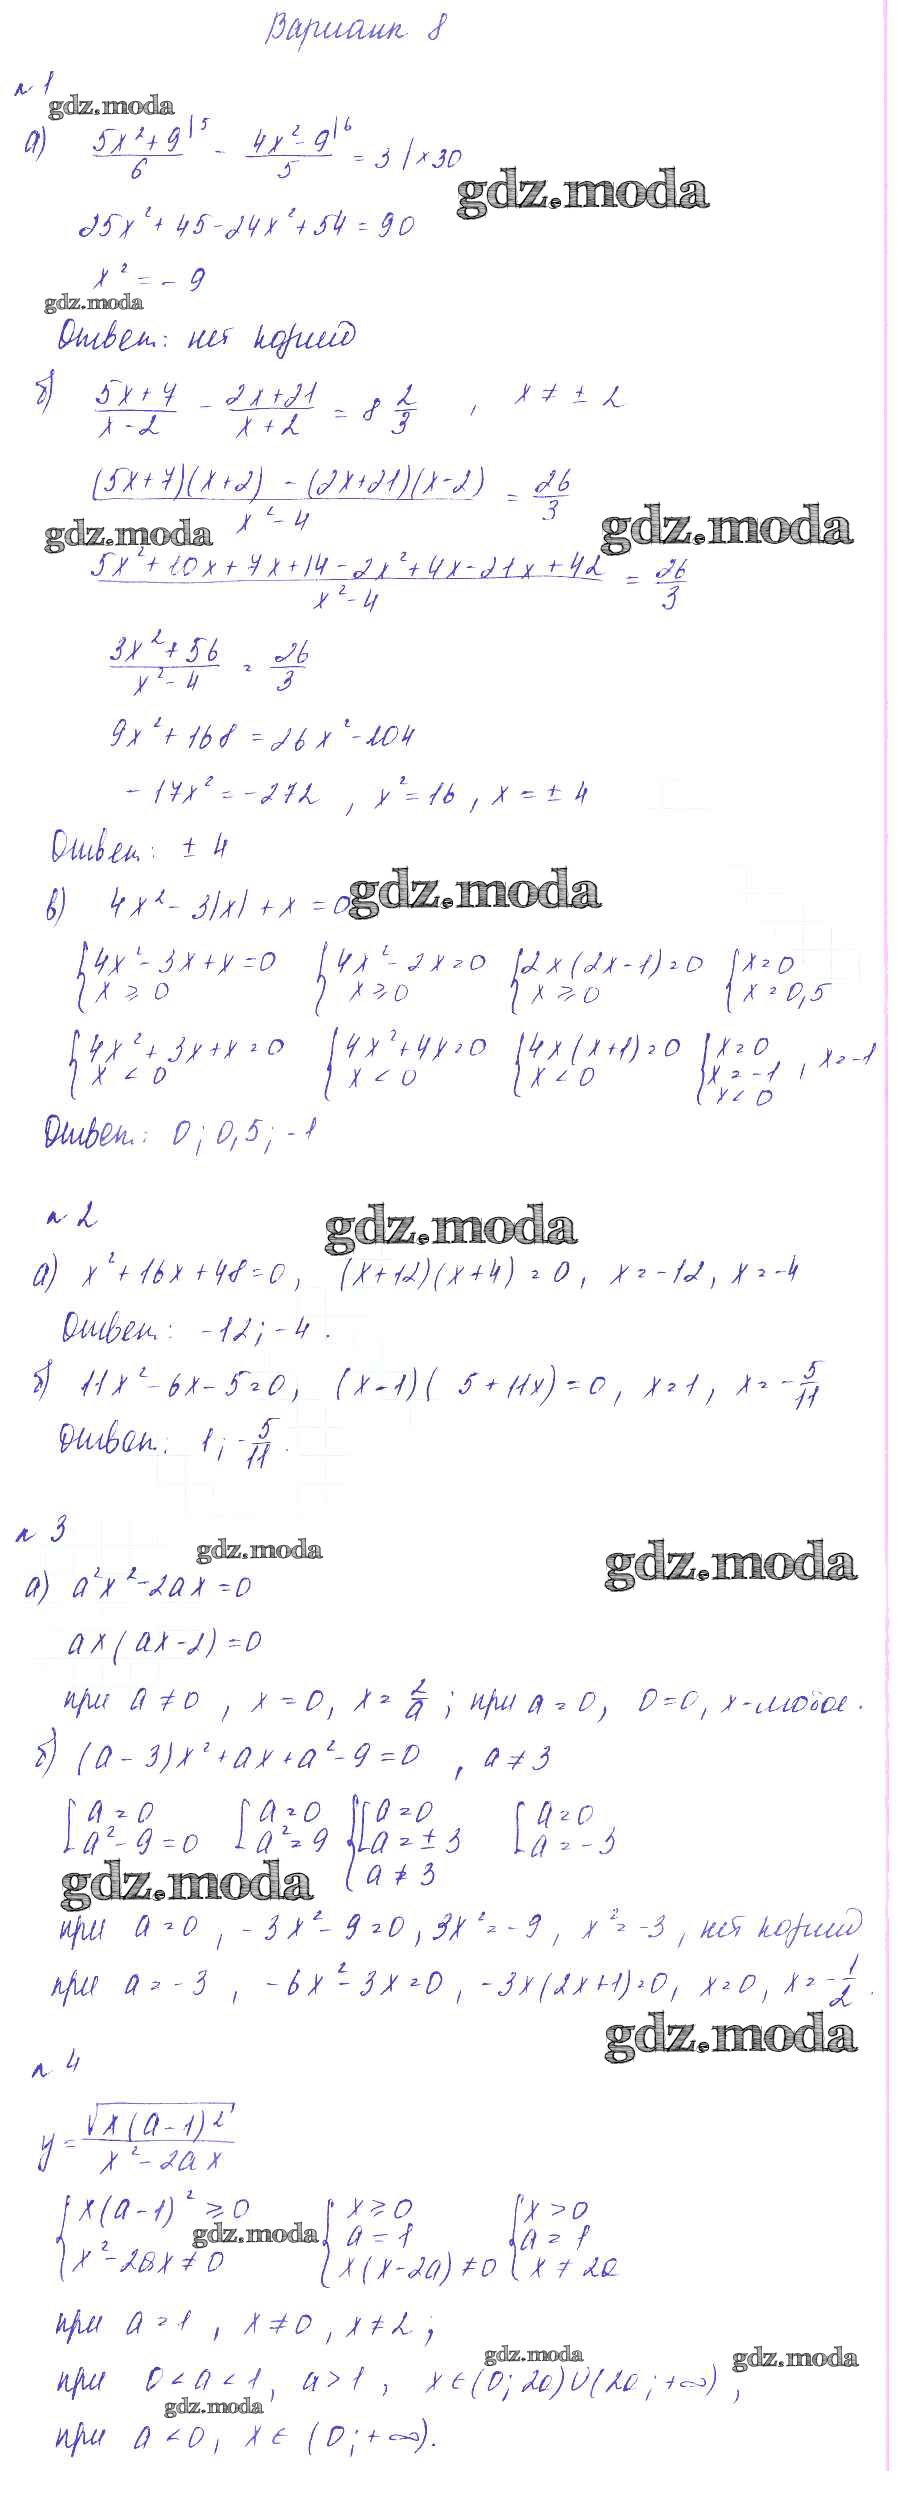 Вариант 8
№ 1
gdz.moda
а) (5x²+9)/6 |5 - (4x²-9)/5 |6 = 3 | ×30
gdz.moda
25x²+45-24x²+54=90
x² = -9
gdz.moda
Ответ: нет корней
б) (5x+7)/(x-2) - (2x+21)/(x+2) = 8 2/3 , x ≠ ± 2
((5x+7)(x+2) - (2x+21)(x-2))/(x²-4) = 26/3
gdz.moda gdz.moda
(5x²+10x+7x+14-2x²+4x-21x+42)/(x²-4) = 26/3
(3x²+56)/(x²-4) = 26/3
9x²+168=26x²-104
-17x²=-272 , x²=16 , x=±4
Ответ: ±4
в) 4x²-3|x|+x=0 gdz.moda
{4x²-3x+x=0 {4x²-2x=0 {2x(2x-1)=0 {x=0
x≥0 x≥0 x≥0 x=0,5
{4x²+3x+x=0 {4x²+4x=0 {4x(x+1)=0 {x=0
x<0 x<0 x<0 x=-1 , x=-1
x<0
Ответ: 0; 0,5; -1
№ 2 gdz.moda
а) x²+16x+48=0, (x+12)(x+4)=0, x=-12, x=-4
Ответ: -12; -4.
б) 11x²-6x-5=0, (x-1)( 5+11x)=0, x=1, x=-5/11
Ответ: 1; -5/11.
№ 3 gdz.moda gdz.moda
а) a²x²-2ax=0
ax(ax-2)=0
при a≠0 , x=0, x=2/a ; при a=0, 0=0, x-любое.
б) (a-3)x²+ax+a²-9=0 , a≠3
[a=0 [a=0 {[a=0 [a=0
a²-9=0 a²=9 a=±3 a=-3
a≠3
gdz.moda
при a=0 , -3x²-9=0, 3x²=-9, x²=-3, нет корней
при a=-3 , -6x²-3x=0, -3x(2x+1)=0, x=0, x=-1/2.
gdz.moda
№ 4
y=√(x(a-1)²)/(x²-2ax)
{x(a-1)²≥0 {x≥0 {x>0
gdz.moda a=1 a=1
x²-2ax≠0 x(x-2a)≠0 x≠2a
при a=1 , x≠0 , x≠2;
gdz.moda gdz.moda
при 0<a<1, a>1 , x∈(0;2a)∪(2a;+∞) ,
gdz.moda
при a<0, x∈ (0;+∞).